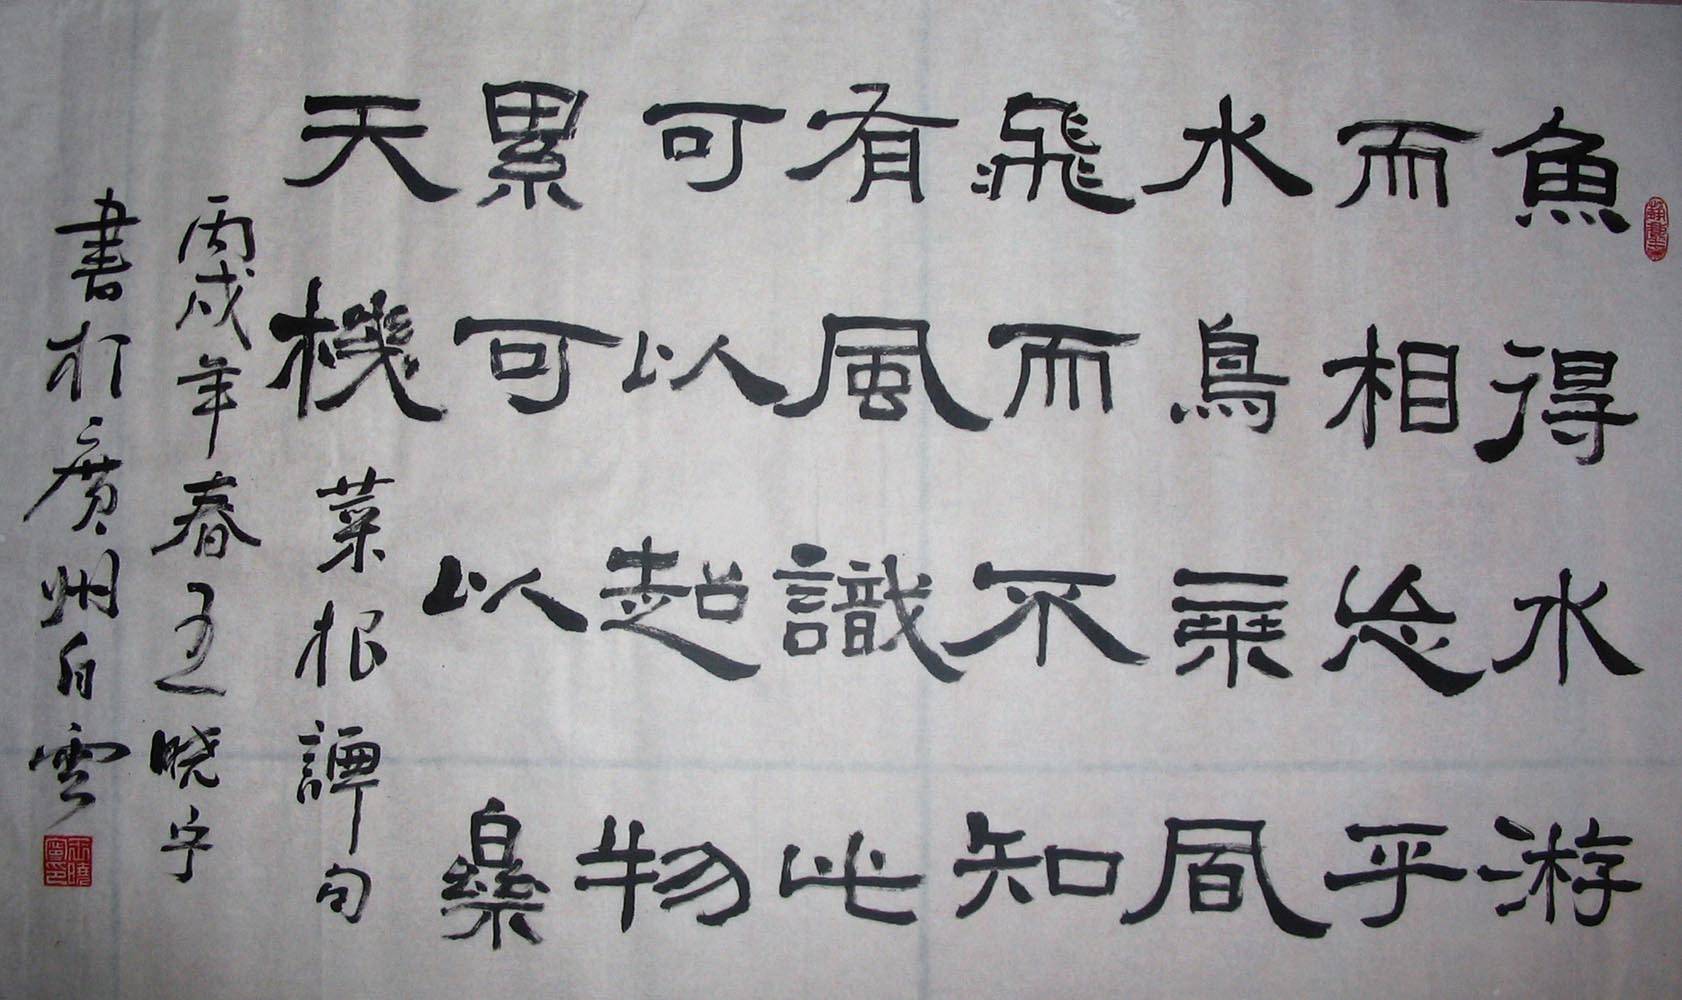 魚得水游
而相忘乎
水鳥乘風
飛而不知
有風識此
可以超物
累可以樂
天機 菜根譚句
丙戌年春王晓宁
書於廣州白雲